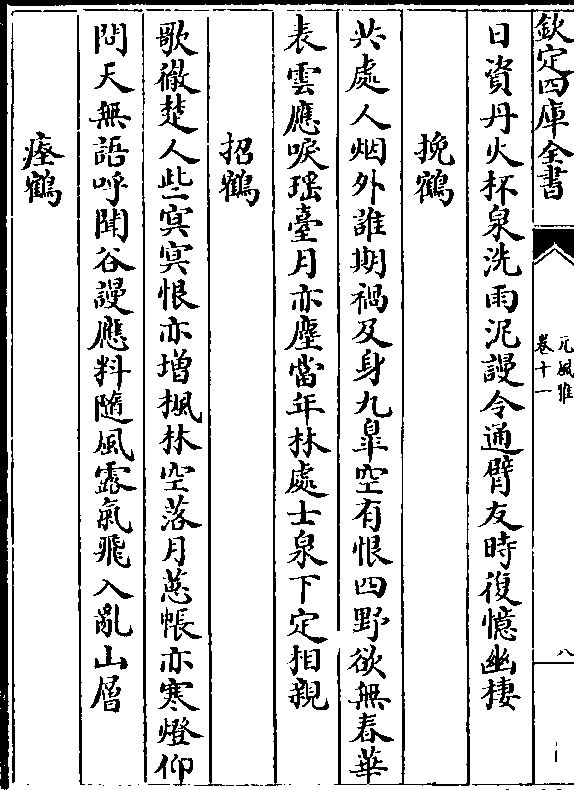 欽定四庫全書
元風雅
卷十一
八
日資丹火杯泉洗雨泥謾令通臂友時復憶幽棲
挽鶴
共處人烟外誰期禍及身九皐空有恨四野欲無春華
表雲應唳瑶臺月亦塵當年林處士泉下定相親
招鶴
歌徹楚人些冥冥恨亦增楓林空落月蕙帳亦寒燈仰
問天無語呼聞谷謾應料隨風露氣飛入亂山層
瘞鶴